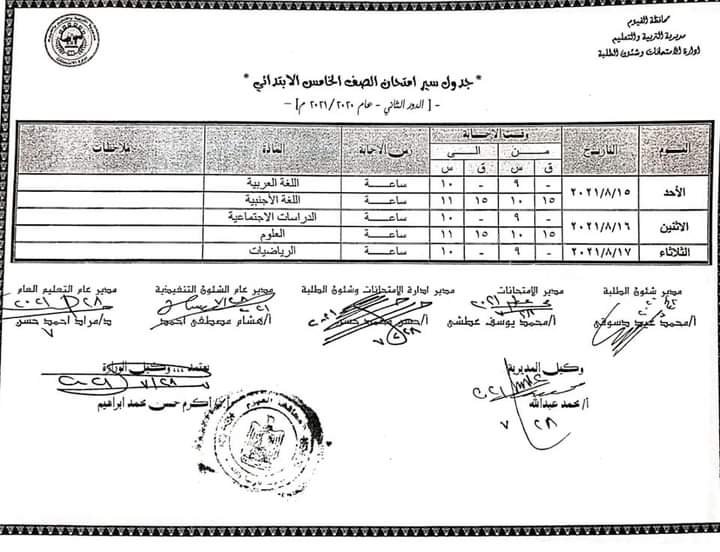 محافظة الفيوم
مديرية التربية والتعليم
ادارة الامتحانات وشئون الطلبة
* جدول سير امتحان الصف الخامس الابتدائي *
- [ الدور الثاني - عام ٢٠٢٠/ ٢٠٢١ م] -
اليوم التاريخ وقت الاجابة زمن الاجابة المادة ملاحظات
من الى
ق س ق س
الأحد ٢٠٢١/٨/١٥ - ٩ - ١٠ ساعة اللغة العربية
١٥ ١٠ ١٥ ١١ ساعة اللغة الأجنبية
الاثنين ٢٠٢١/٨/١٦ - ٩ - ١٠ ساعة الدراسات الاجتماعية
١٥ ١٠ ١٥ ١١ ساعة العلوم
الثلاثاء ٢٠٢١/٨/١٧ - ٩ - ١٠ ساعة الرياضيات
مدير شئون الطلبة مدير الامتحانات مدير ادارة الامتحانات وشئون الطلبة مدير عام الشئون التنفيذية مدير عام التعليم العام
أ/محمد عيد دسوقى أ/محمد يوسف عطشى أ/حسن محمد حسن أ/هشام مصطفى احمد د/مراد احمد حسن
وكيل المديرية يعتمد ,,, وكيل الوزارة
أ/ محمد عبدالله أ/ أكرم حسن محمد ابراهيم
٧/٢٨
محافظة الفيوم